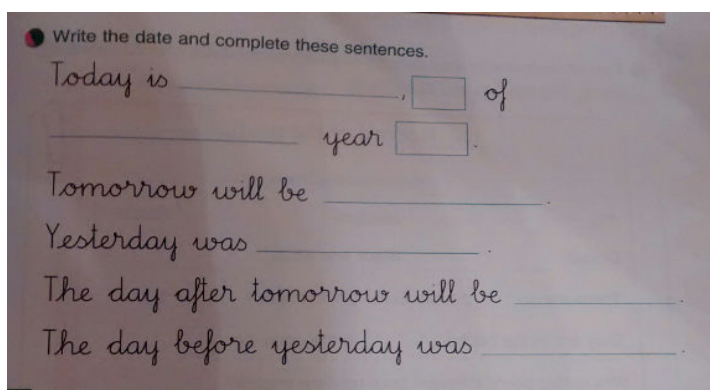 Write the date and complete these sentences.
Today is ________, of
________ year .
Tomorrow will be ________.
Yesterday was ________.
The day after tomorrow will be ________.
The day before yesterday was ________.